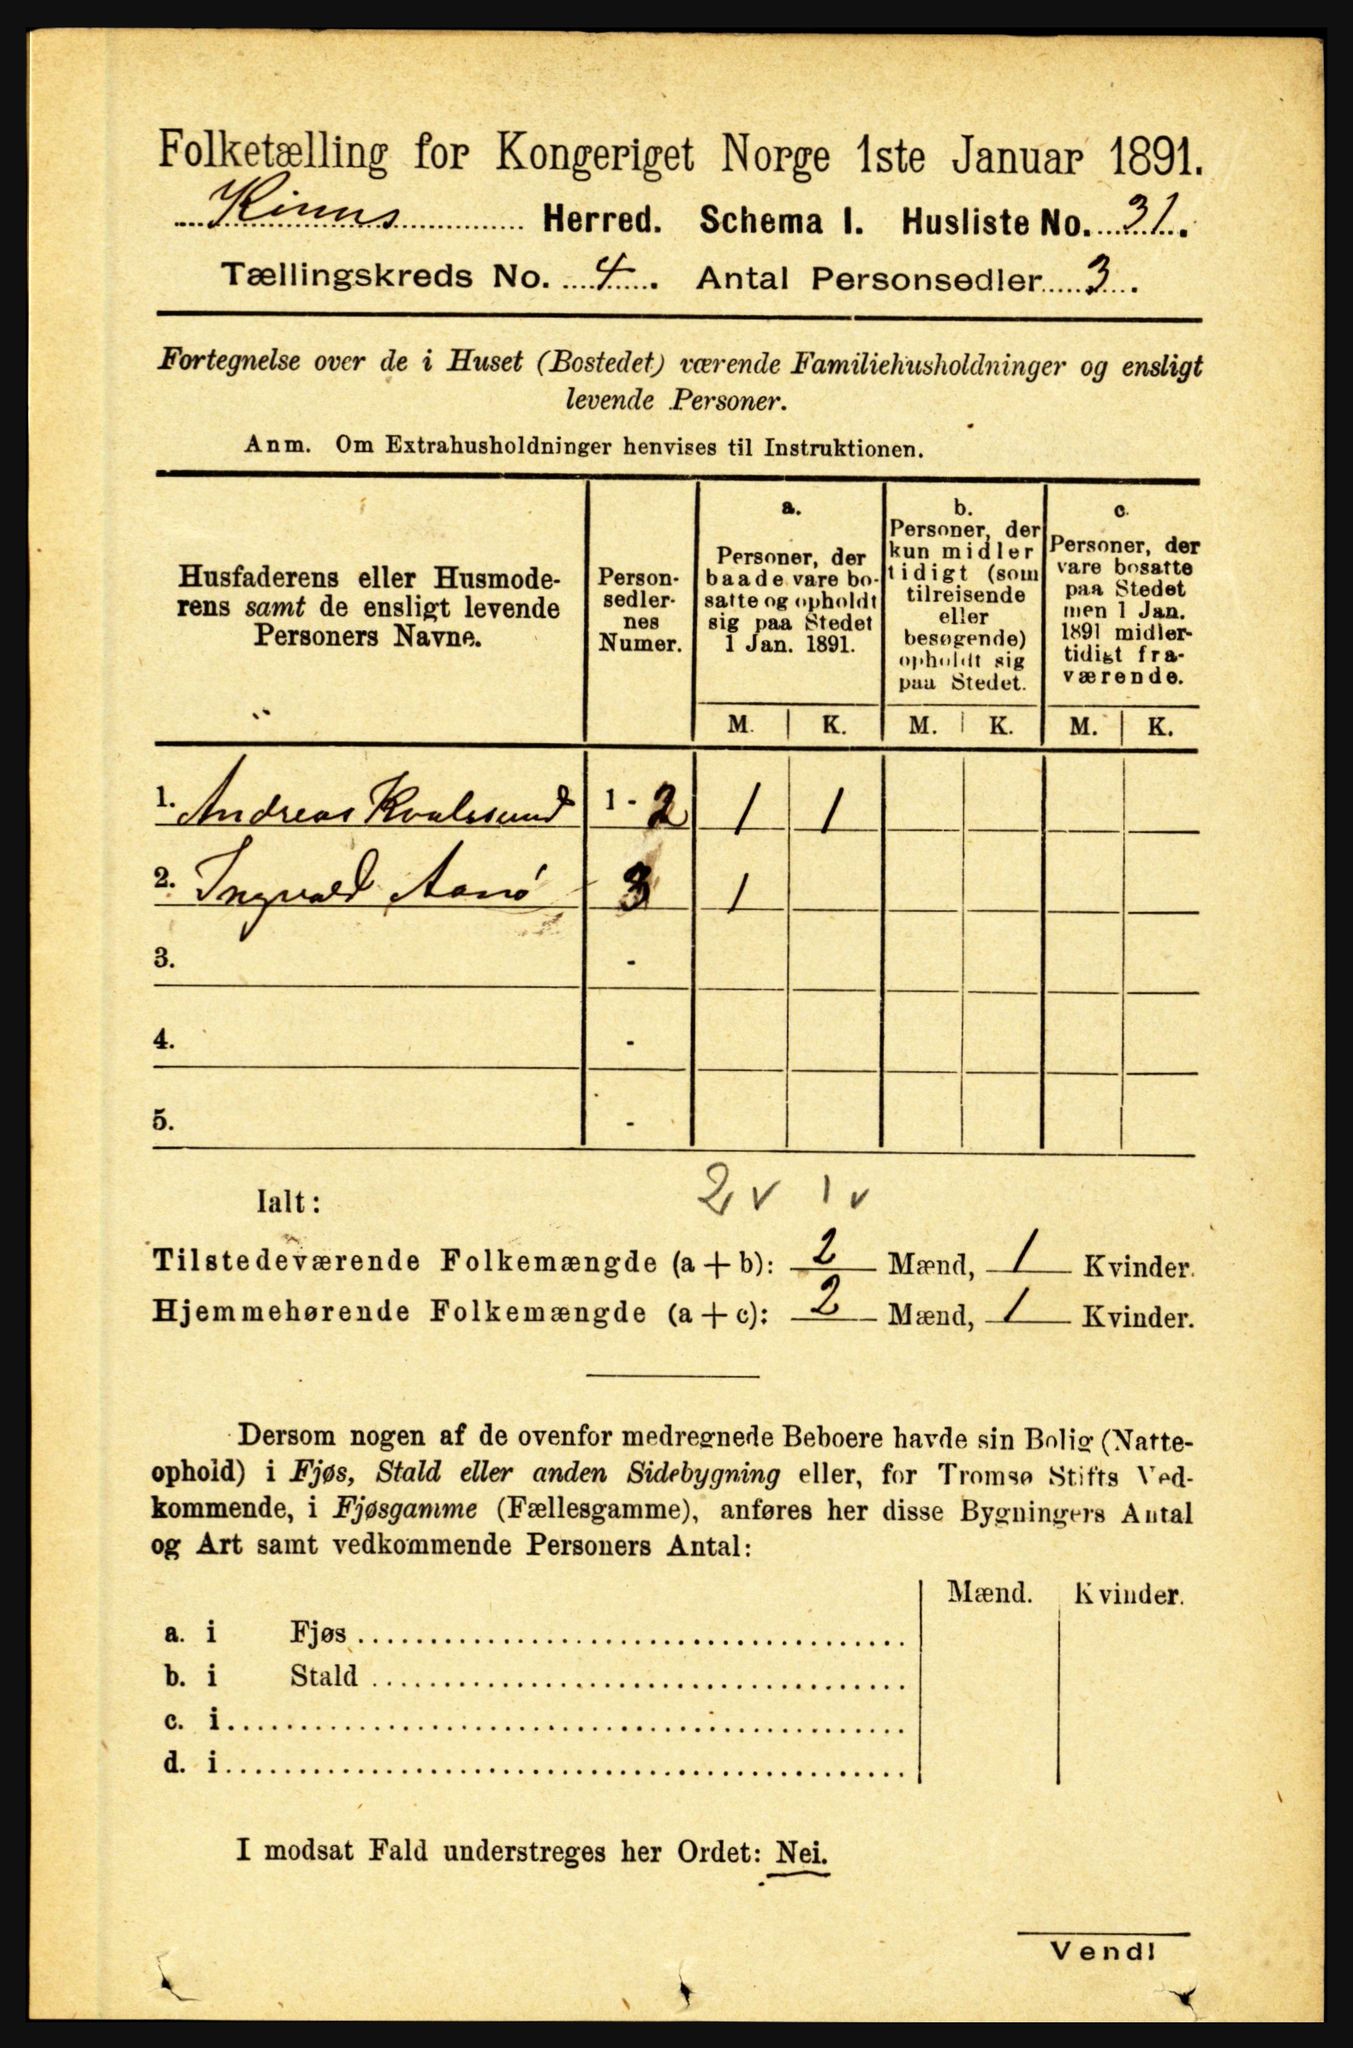 Folketælling for Kongeriget Norge 1ste Januar 1891.
Kinns Herred. Schema I. Husliste No. 31.
Tællingskreds No. 4. Antal Personsedler 3.
Fortegnelse over de i Huset (Bostedet) værende Familiehusholdninger og ensligt
levende Personer.
Anm. Om Extrahusholdninger henvises til Instruktionen.
Husfaderens eller Husmode-
rens samt de ensligt levende
Personers Navne.
Person-
sedler-
nes
Numer.
a.
Personer, der
baade vare bo-
satte og opholdt
sig paa Stedet
1 Jan. 1891.
b.
Personer, der
kun midler
tidigt (som
tilreisende
eller
besøgende)
opholdt sig
paa Stedet.
c.
Personer, der
vare bosatte
paa Stedet
men 1 Jan.
1891 midler-
tidigt fra-
værende.
M. K. M. K. M. K.
1. Andreas Kvalssund 1 - 2 1 1
2. Ingvald Aasø 3 1
3. -
4. -
5. -
2 v 1 v
Ialt:
Tilstedeværende Folkemængde (a + b): 2 Mænd, 1 Kvinder.
Hjemmehørende Folkemængde (a + c): 2 Mænd, 1 Kvinder.
Dersom nogen af de ovenfor medregnede Beboere havde sin Bolig (Natte-
ophold) i Fjøs, Stald eller anden Sidebygning eller, for Tromsø Stifts Ved-
kommende, i Fjøsgamme (Fællesgamme), anføres her disse Bygningers Antal
og Art samt vedkommende Personers Antal:
Mænd. Kvinder.
a. i Fjøs
b. i Stald
c. i
d. i
I modsat Fald understreges her Ordet: Nei.
Vend!